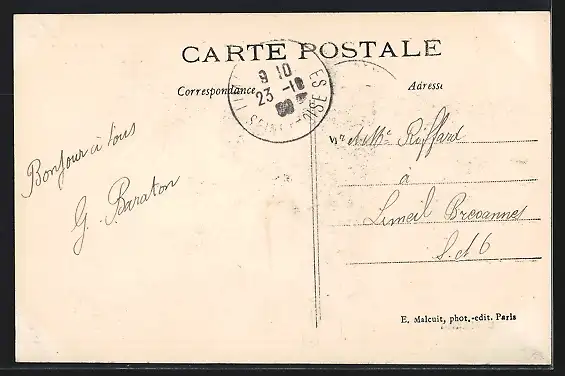 CARTE POSTALE
Correspondance
Adresse
9 10
23 -10
SEINE-ET-OISE
Bonjour à tous
G. Baraton
Mr et Mme Riffard
à
Limeil Brevannes
S. et O
E. Malcuit, phot.-edit. Paris